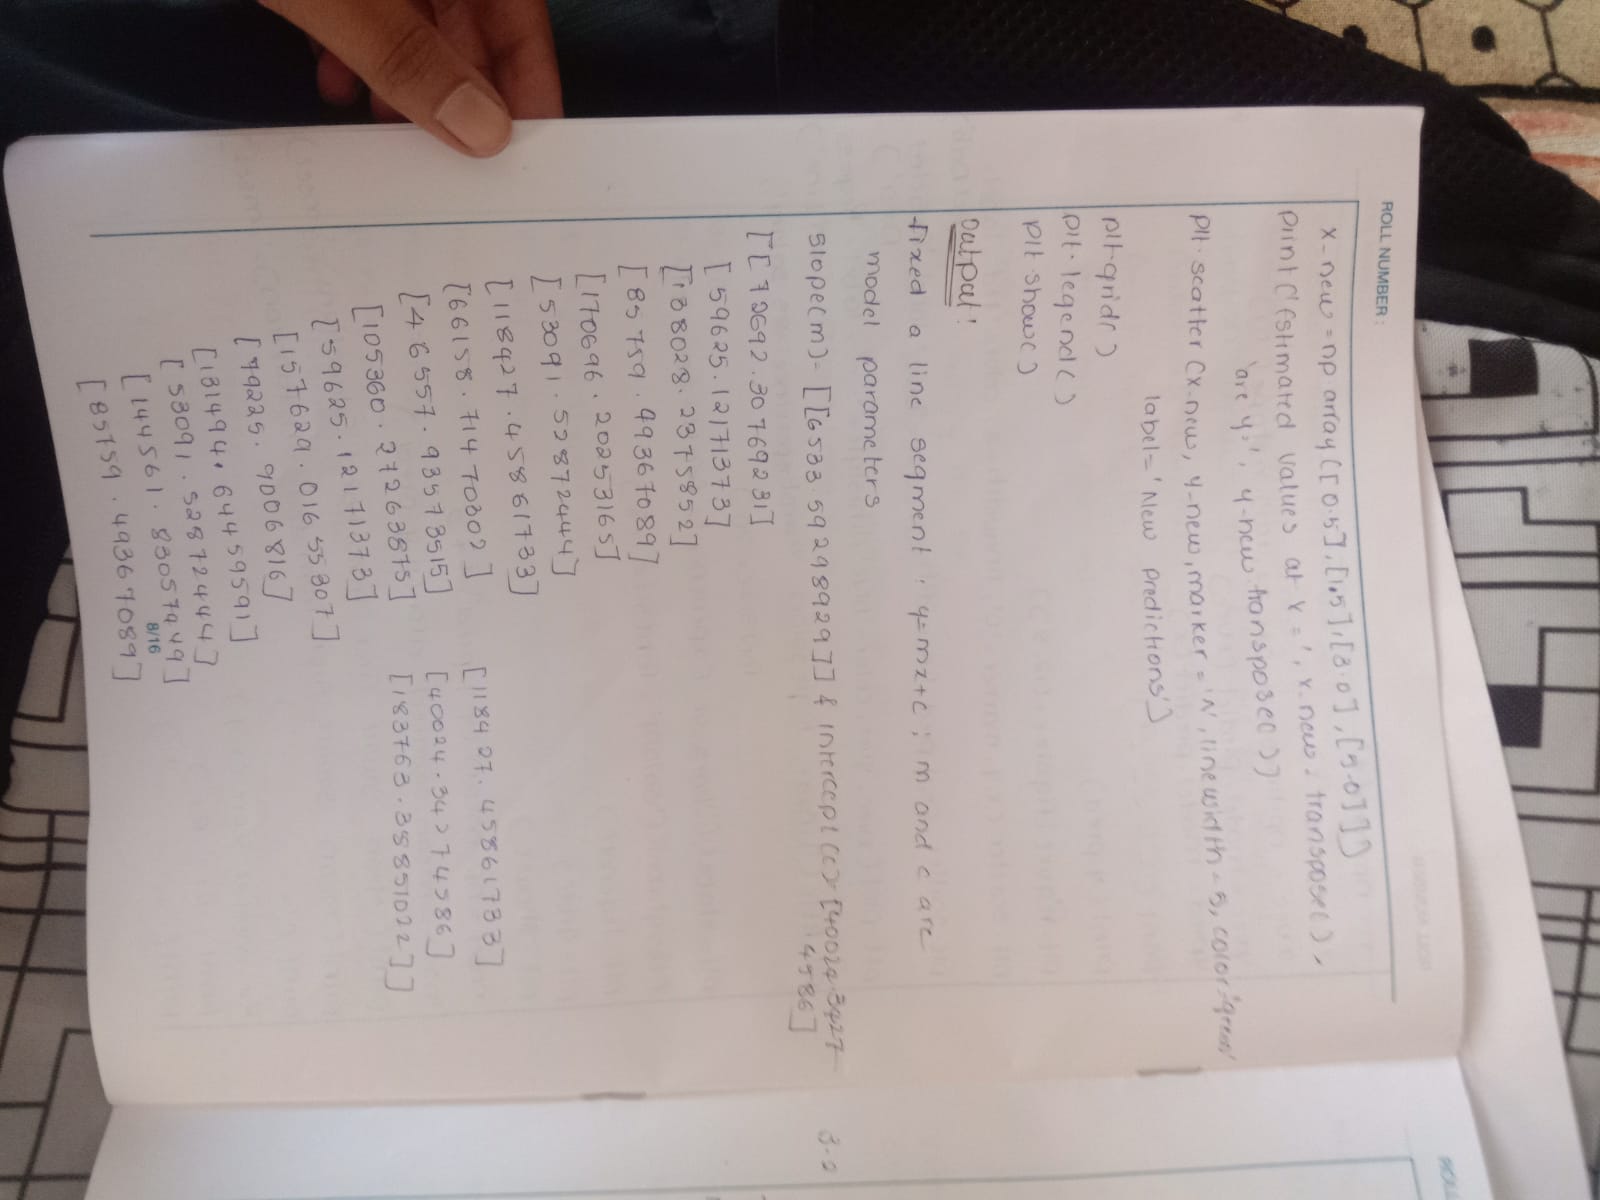 ROLL NUMBER :
x-new = np array([0.5],[1.5],[3.0],[5.0]])
print('Estimated values at x = ', x-new. transpose(),
'are y=', y-new transpose())
plt. scatter (x-new, y-new, marker = 'N', linewidth = 5, color='green'
label = 'New predictions')
plt.grid()
plt. legend()
plt show()
Output:
fixed a line segment : y=mx+c ; m and c are
model parameters
slope(m) = [[6533 5929 8929]] & intercept (c) = [40024.3427
4586]
[[72692.30769231]
[59625.12171373]
[138028.2375852]
[85759.49367089]
[170696.20253165]
[53091.52872444]
[118427.45861733]
[66158.71470302]
[46557.93573515]
[105360.27263875]
[59625.12171373]
[157629.01655807]
[79225.9006816]
[131494.64459591]
[53091.52872444]
[144561.83057949]
[85759.49367089]
8/16
[118427.458617 33]
[40024.342 74586]
[183763.38851022]]
3.0